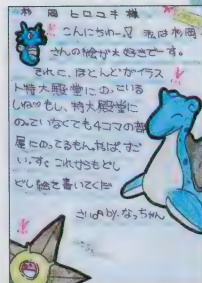 杉岡ヒロユキ様
こんにちわー♡ 私は杉岡
さんの絵が大好きでーす。
それに、ほとんどがイラス
ト特大殿堂にのっている
しね。もし、特大殿堂に
のっていなくても4コマの部
屋にのってるもん。やっぱ、すご
いっす。これからもどし
どし絵を書いてくださ
さい。 by. なっちゃん